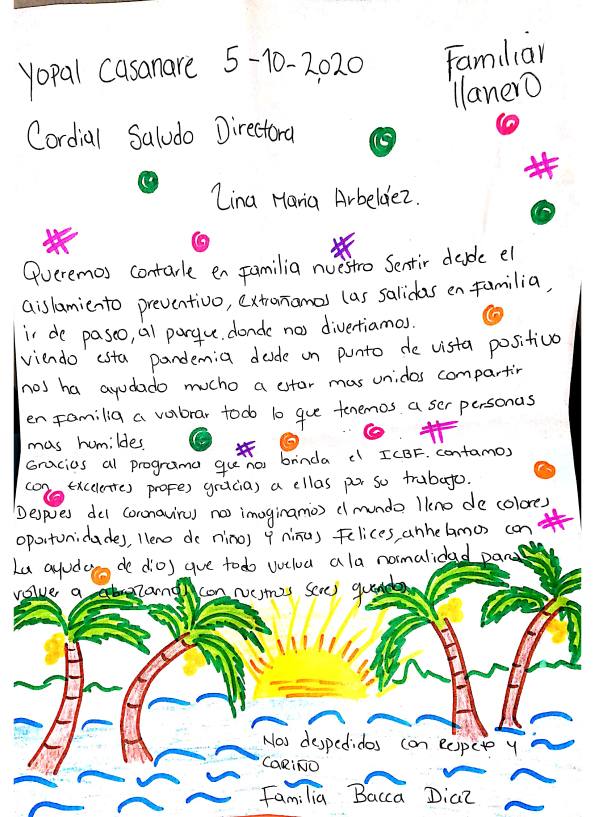 Yopal Casanare 5-10-2020
Familiar
llanero
Cordial Saludo Directora
Lina Maria Arbeláez.
Queremos contarle en familia nuestro Sentir desde el
aislamiento preventivo, extrañamos las salidas en familia,
ir de paseo, al parque. donde nos divertiamos.
viendo esta pandemia desde un punto de vista positivo
nos ha ayudado mucho a estar mas unidos compartir
en familia a valorar todo lo que tenemos a ser personas
mas humildes.
Gracias al programa que nos brinda el ICBF. contamos
con excelentes profes gracias a ellas por su trabajo.
Despues del coronavirus nos imaginamos el mundo lleno de colores
oportunidades, lleno de niños y niñas Felices, anhelamos con
La ayuda de dios que todo vuelva a la normalidad para
volver a abrazarnos con nuestros seres queridos
Nos despedidos con Respeto y
CARIÑO
Familia Bacca Diaz